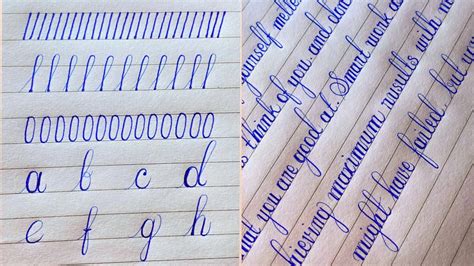 a b c d
e f g h
yourself
think of you and don
you are good at. Smart work a
hieving maximum results with m
might have failed, but